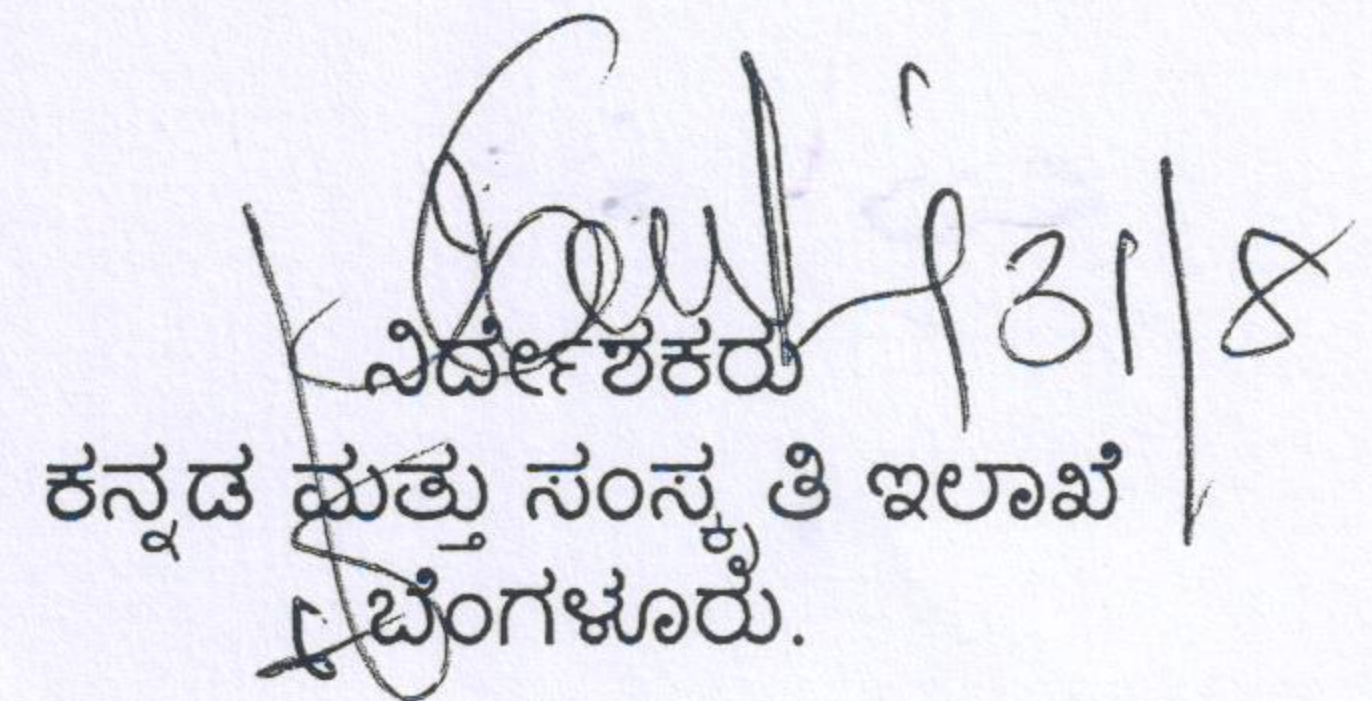 31/8
ನಿರ್ದೇಶಕರು
ಕನ್ನಡ ಮತ್ತು ಸಂಸ್ಕೃತಿ ಇಲಾಖೆ
ಬೆಂಗಳೂರು.